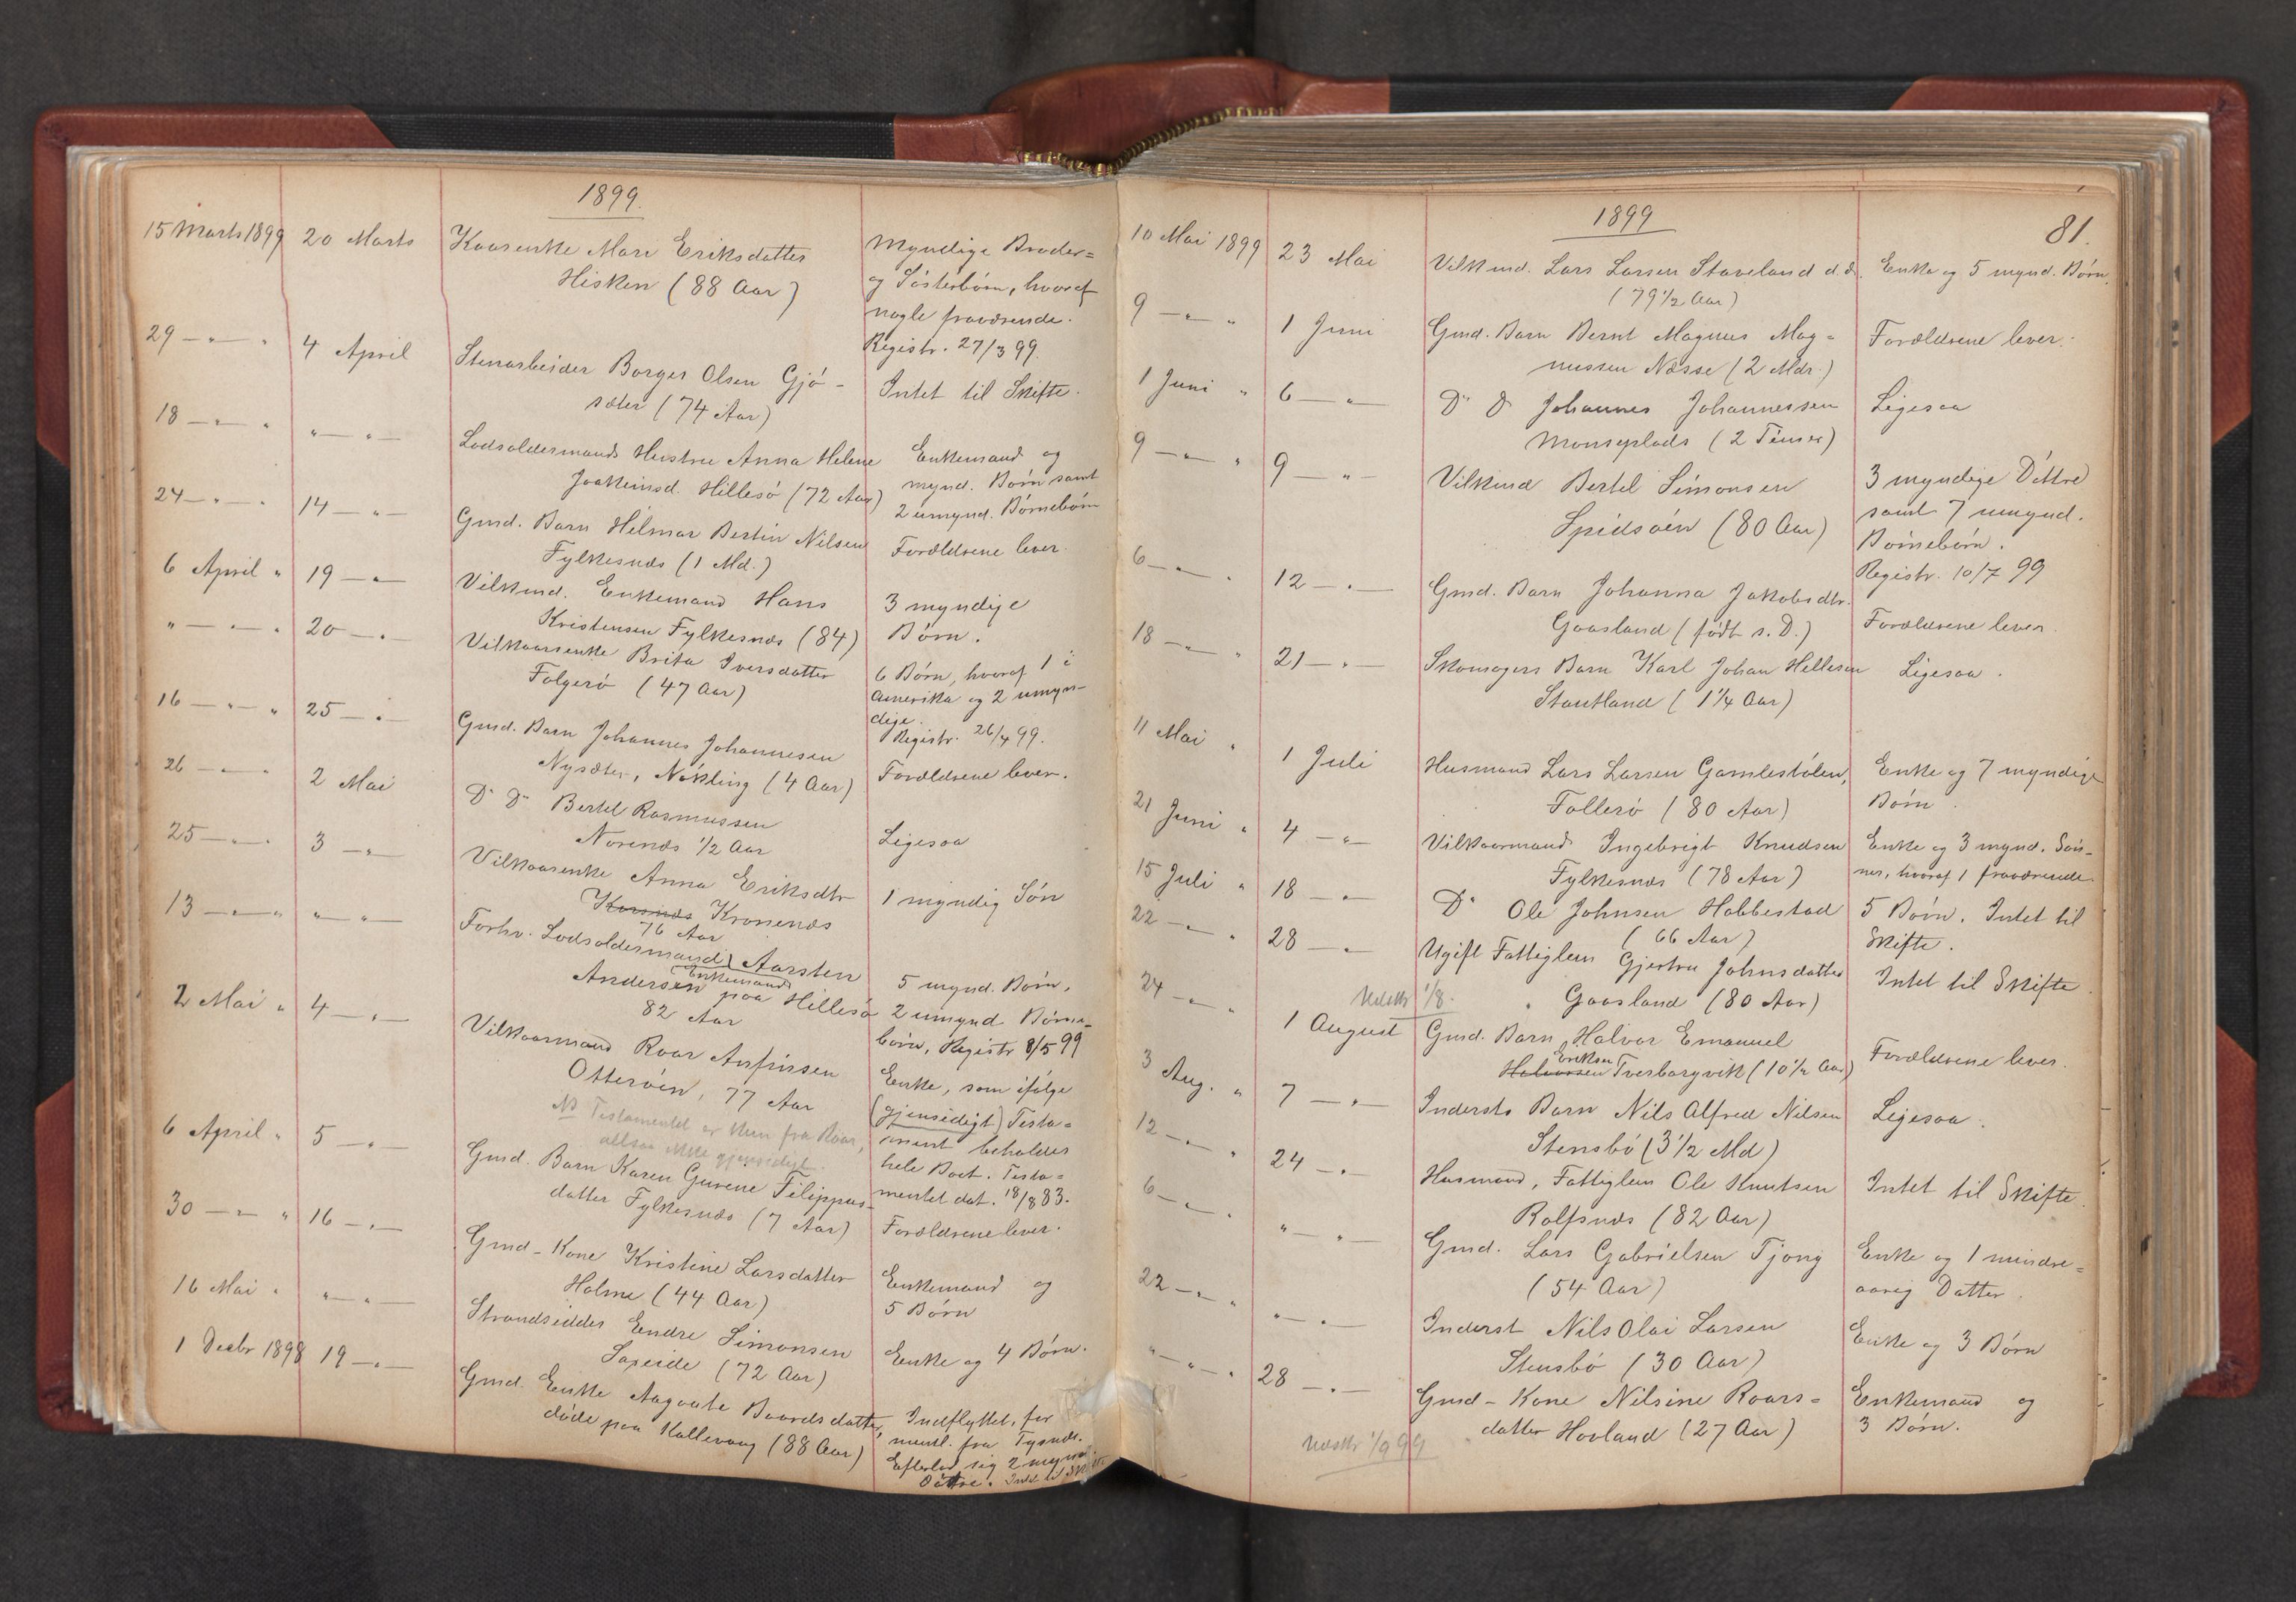 1899.
15 Marts 1899 20 Marts Kaarenke Mari Eriksdatter Myndige Broder-
Hisken (88 Aar) og Søsterbørn, hvoraf
nogle fraværende.
Registr. 27/3 99.
29 — " — " 4 April Stenarbeider Borger Olsen Gjø-
sæter (74 Aar) Intet til Skifte.
18 — " — " " — " — Lodsoldermands Hustru Anna Helene Enkemand og
Joakimsd. Hillesø (72 Aar) mynd. Børn samt
2 umynd. Børnebørn
24 — " — " 14 — " — Gmd. Barn Hilmar Bertin Nilsen
Fylkesnæs (1 Md.) Forældrene lever.
6 April " 19 — " — Vilkmd. Enkemand Hans 3 myndige
Kristensen Fylkesnæs (84) Børn.
" — " — " 20 — " — Vilkaarsenke Brita Iversdatter 6 Børn, hvoraf 1 i
Folgerø (47 Aar) Amerika og 2 umyn-
dige.
Registr. 26/4 99.
16 — " — " 25 — " — Gmd. Barn Johannes Johannesen
Nysæter, Nøkling (4 Aar) Forældrene lever.
26 — " — " 2 Mai Do Do Bertel Rasmussen
Norenæs 1/2 Aar Ligesaa
25 — " — " 3 — " — Vilkaarsenke Anna Eriksdtr
Korsnæs Kronenæs 1 myndig Søn
76 Aar
13 — " — " " — " — Forhv. Lodsoldermand Aarsten
(Enkemand)
Andersen paa Hillesø 5 mynd. Børn,
82 Aar 2 umynd Børne-
børn, Registr 8/5 99
2 Mai " 4 — " — Vilkaarmand Roar Anfinsen Enke, som ifølge
Otterøen, 77 Aar (gjensidigt) Testa-
NB Testamentet er kun fra Roar, ment beholder
altsaa ikke gjensidigt. hele Boet. Testa-
mentet dat. 18/8 83.
6 April " 5 — " — Gmd. Barn Karen Gurene Filippus-
datter Fylkesnæs (7 Aar) Forældrene lever.
30 — " — " 16 — " — Gmd-Kone Kristine Larsdatter Enkemand og
Holme (44 Aar) 5 Børn
16 Mai " " — " — Strandsidder Endre Simonsen
Sapeide (72 Aar) Enke og 4 Børn.
1 Decbr 1898 19 — " — Gmd. Enke Aagaate Baardsdatter, Indflyttet, for
døde paa Kallevaag (88 Aar) mentl. fra Tysnæs.
Efterlod sig 2 mynd.
Døtre. Intet til Skifte
1899 81.
10 Mai 1899 23 Mai Vilkmd. Lars Larsen Staveland d.æ. Enke og 5 mynd. Børn.
(79 1/2 Aar)
9 — " — " 1 Juni Gmd. Barn Bernt Magnus Mag- Forældrene lever.
nussen Næsse (2 Mdr.)
1 Juni " 6 — " — Do Do Johannes Johannessen Ligesaa
Monseplads (2 Timer)
9 — " — " 9 — " — Vilkmd Bertel Simonsen 3 myndige Døttre
Spidsøen (80 Aar) samt 7 umynd.
Børnebørn.
Registr. 10/7 99
6 — " — " 12 — " — Gmd. Barn Johanna Jakobsdtr.
Gaasland (født s. D.) Forældrene lever.
18 — " — " 21 — " — Skomagers Barn Karl Johan Hellesen Ligesaa.
Stautland (1 1/4 Aar)
11 Mai " 1 Juli Husmand Lars Larsen Gamlestølen, Enke og 7 myndige
Follerø (80 Aar) Børn.
21 Juni " 4 — " — Vilkaarmand Ingebrigt Knudsen Enke og 3 mynd. Søn-
Fylkesnæs (78 Aar) ner, hvoraf 1 fraværende.
15 Juli " 18 — " — Do Ole Johnsen Habbestad 5 Børn. Intet til
(66 Aar) Skifte.
22 — " — " 28 — " — Ugift Fattiglem Gjertru Johnsdatter Intet til Skifte
Gaasland (80 Aar)
1/8.
24 — " — " 1 August Gmd. Barn Halvor Emanuel
Eriksen
Halvorsen Tverborgvik (10 1/2 Aar) Forældrene lever.
3 Aug. " 7 — " — Indersts Barn Nils Alfred Nilsen Ligesaa.
Stensbø (3 1/2 Md)
12 — " — " 24 — " — Husmand, Fattiglem Ole Knutsen Intet til Skifte.
Rolfsnæs (82 Aar)
6 — " — " " — " — Gmd. Lars Gabrielsen Tjong Enke og 1 mindre-
(54 Aar) aarig Datter.
22 — " — " " — " — Inderst Nils Olai Larsen Enke og 3 Børn
Stensbø (30 Aar)
" — " — " 28 — " — Gmd-Kone Nilsine Roars- Enkemand og
datter Hovland (27 Aar) 3 Børn.
1/9 99